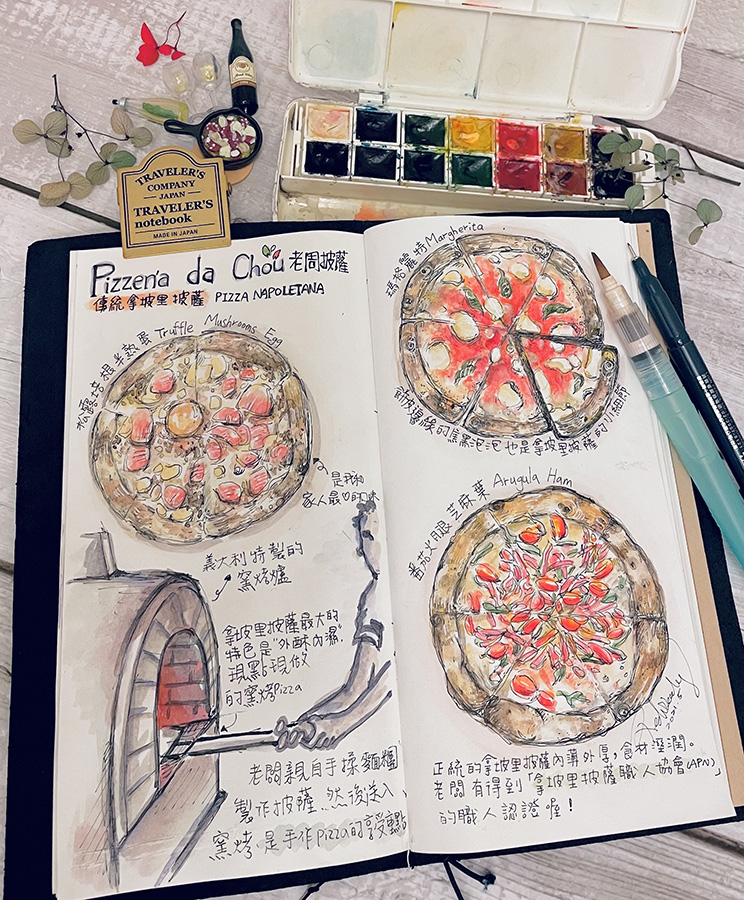 TRAVELER'S
COMPANY
JAPAN
TRAVELER'S
notebook
MADE IN JAPAN
Pizzeria da Chou 老周披薩
傳統拿坡里披薩 PIZZA NAPOLETANA
松露培根半熟蛋 Truffle Mushrooms Egg
是我和
家人最♡的口味
義大利特製的
窯烤爐
拿坡里披薩最大的
特色是"外酥內濕",
現點現做
的窯烤Pizza
老闆親自手揉麵糰
製作披薩,然後送入
窯烤,是手作pizza的享受
瑪格麗特Margherita
餅皮邊緣的焦黑泡泡也是拿坡里披薩的
番茄火腿芝麻葉 Arugula Ham
2021.5
正統的拿坡里披薩內薄外厚,食材溼潤。
老闆有得到「拿坡里披薩職人協會(APN)」
的職人認證喔!